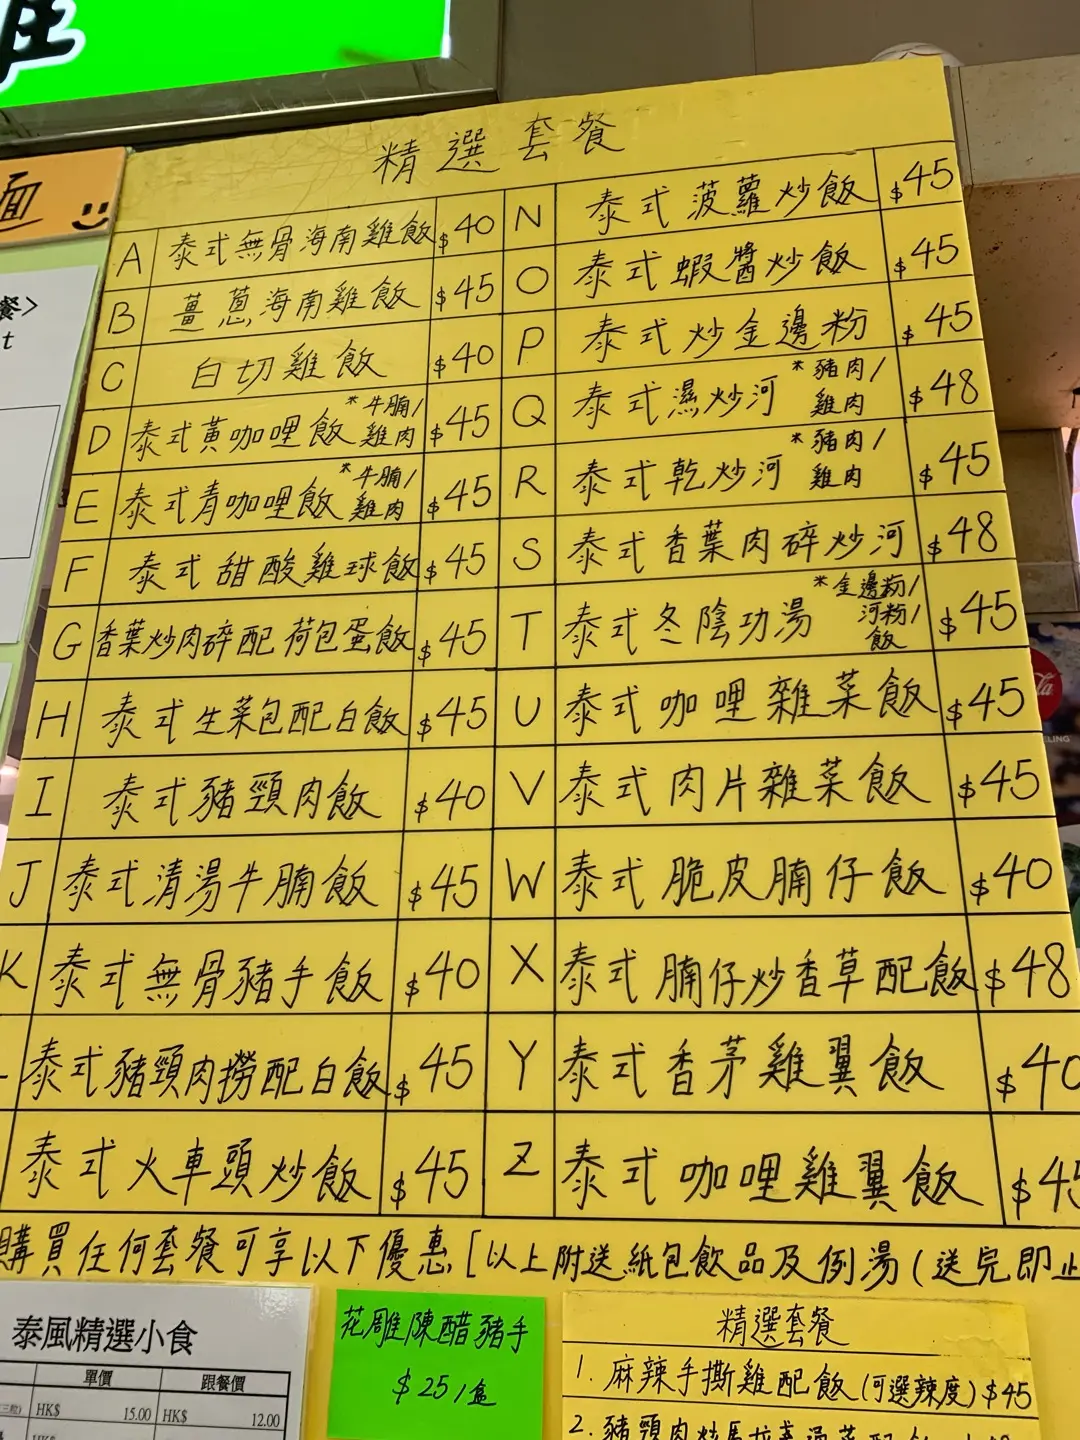 面
餐>
t
精選套餐
A 泰式無骨海南雞飯 $40
B 薑蔥海南雞飯 $45
C 白切雞飯 $40
D 泰式黃咖哩飯 *牛腩/雞肉 $45
E 泰式青咖哩飯 *牛腩/雞肉 $45
F 泰式甜酸雞球飯 $45
G 香葉炒肉碎配荷包蛋飯 $45
H 泰式生菜包配白飯 $45
I 泰式豬頸肉飯 $40
J 泰式清湯牛腩飯 $45
K 泰式無骨豬手飯 $40
泰式豬頸肉撈配白飯 $45
泰式火車頭炒飯 $45
N 泰式菠蘿炒飯 $45
O 泰式蝦醬炒飯 $45
P 泰式炒金邊粉 $45
Q 泰式濕炒河 *豬肉/雞肉 $48
R 泰式乾炒河 *豬肉/雞肉 $45
S 泰式香葉肉碎炒河 $48
T 泰式冬陰功湯 *金邊粉/河粉/飯 $45
U 泰式咖哩雜菜飯 $45
V 泰式肉片雜菜飯 $45
W 泰式脆皮腩仔飯 $40
X 泰式腩仔炒香草配飯 $48
Y 泰式香茅雞翼飯 $40
Z 泰式咖哩雞翼飯 $45
購買任何套餐可享以下優惠[以上附送紙包飲品及例湯(送完即止
泰風精選小食
單價 跟餐價
HK$ 15.00 HK$ 12.00
HK$
花雕陳醋豬手
$25/盒
精選套餐
1. 麻辣手撕雞配飯(可選辣度) $45
2. 豬頸肉炒馬拉盞通菜配